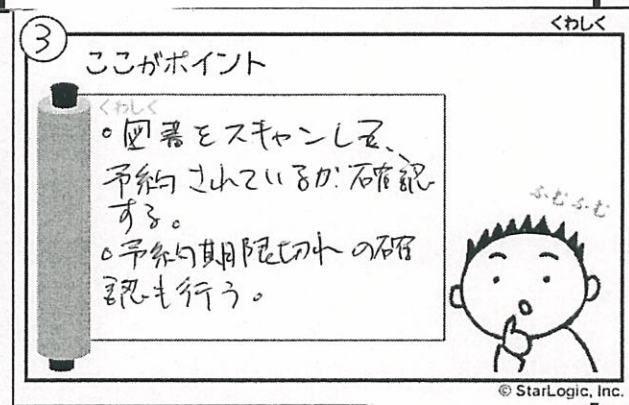 くわしく
③
ここがポイント
くわしく
○図書をスキャンして、
予約されているか確認
する。
○予約期限切れの確
認も行う。
ふむふむ
© StarLogic, Inc.